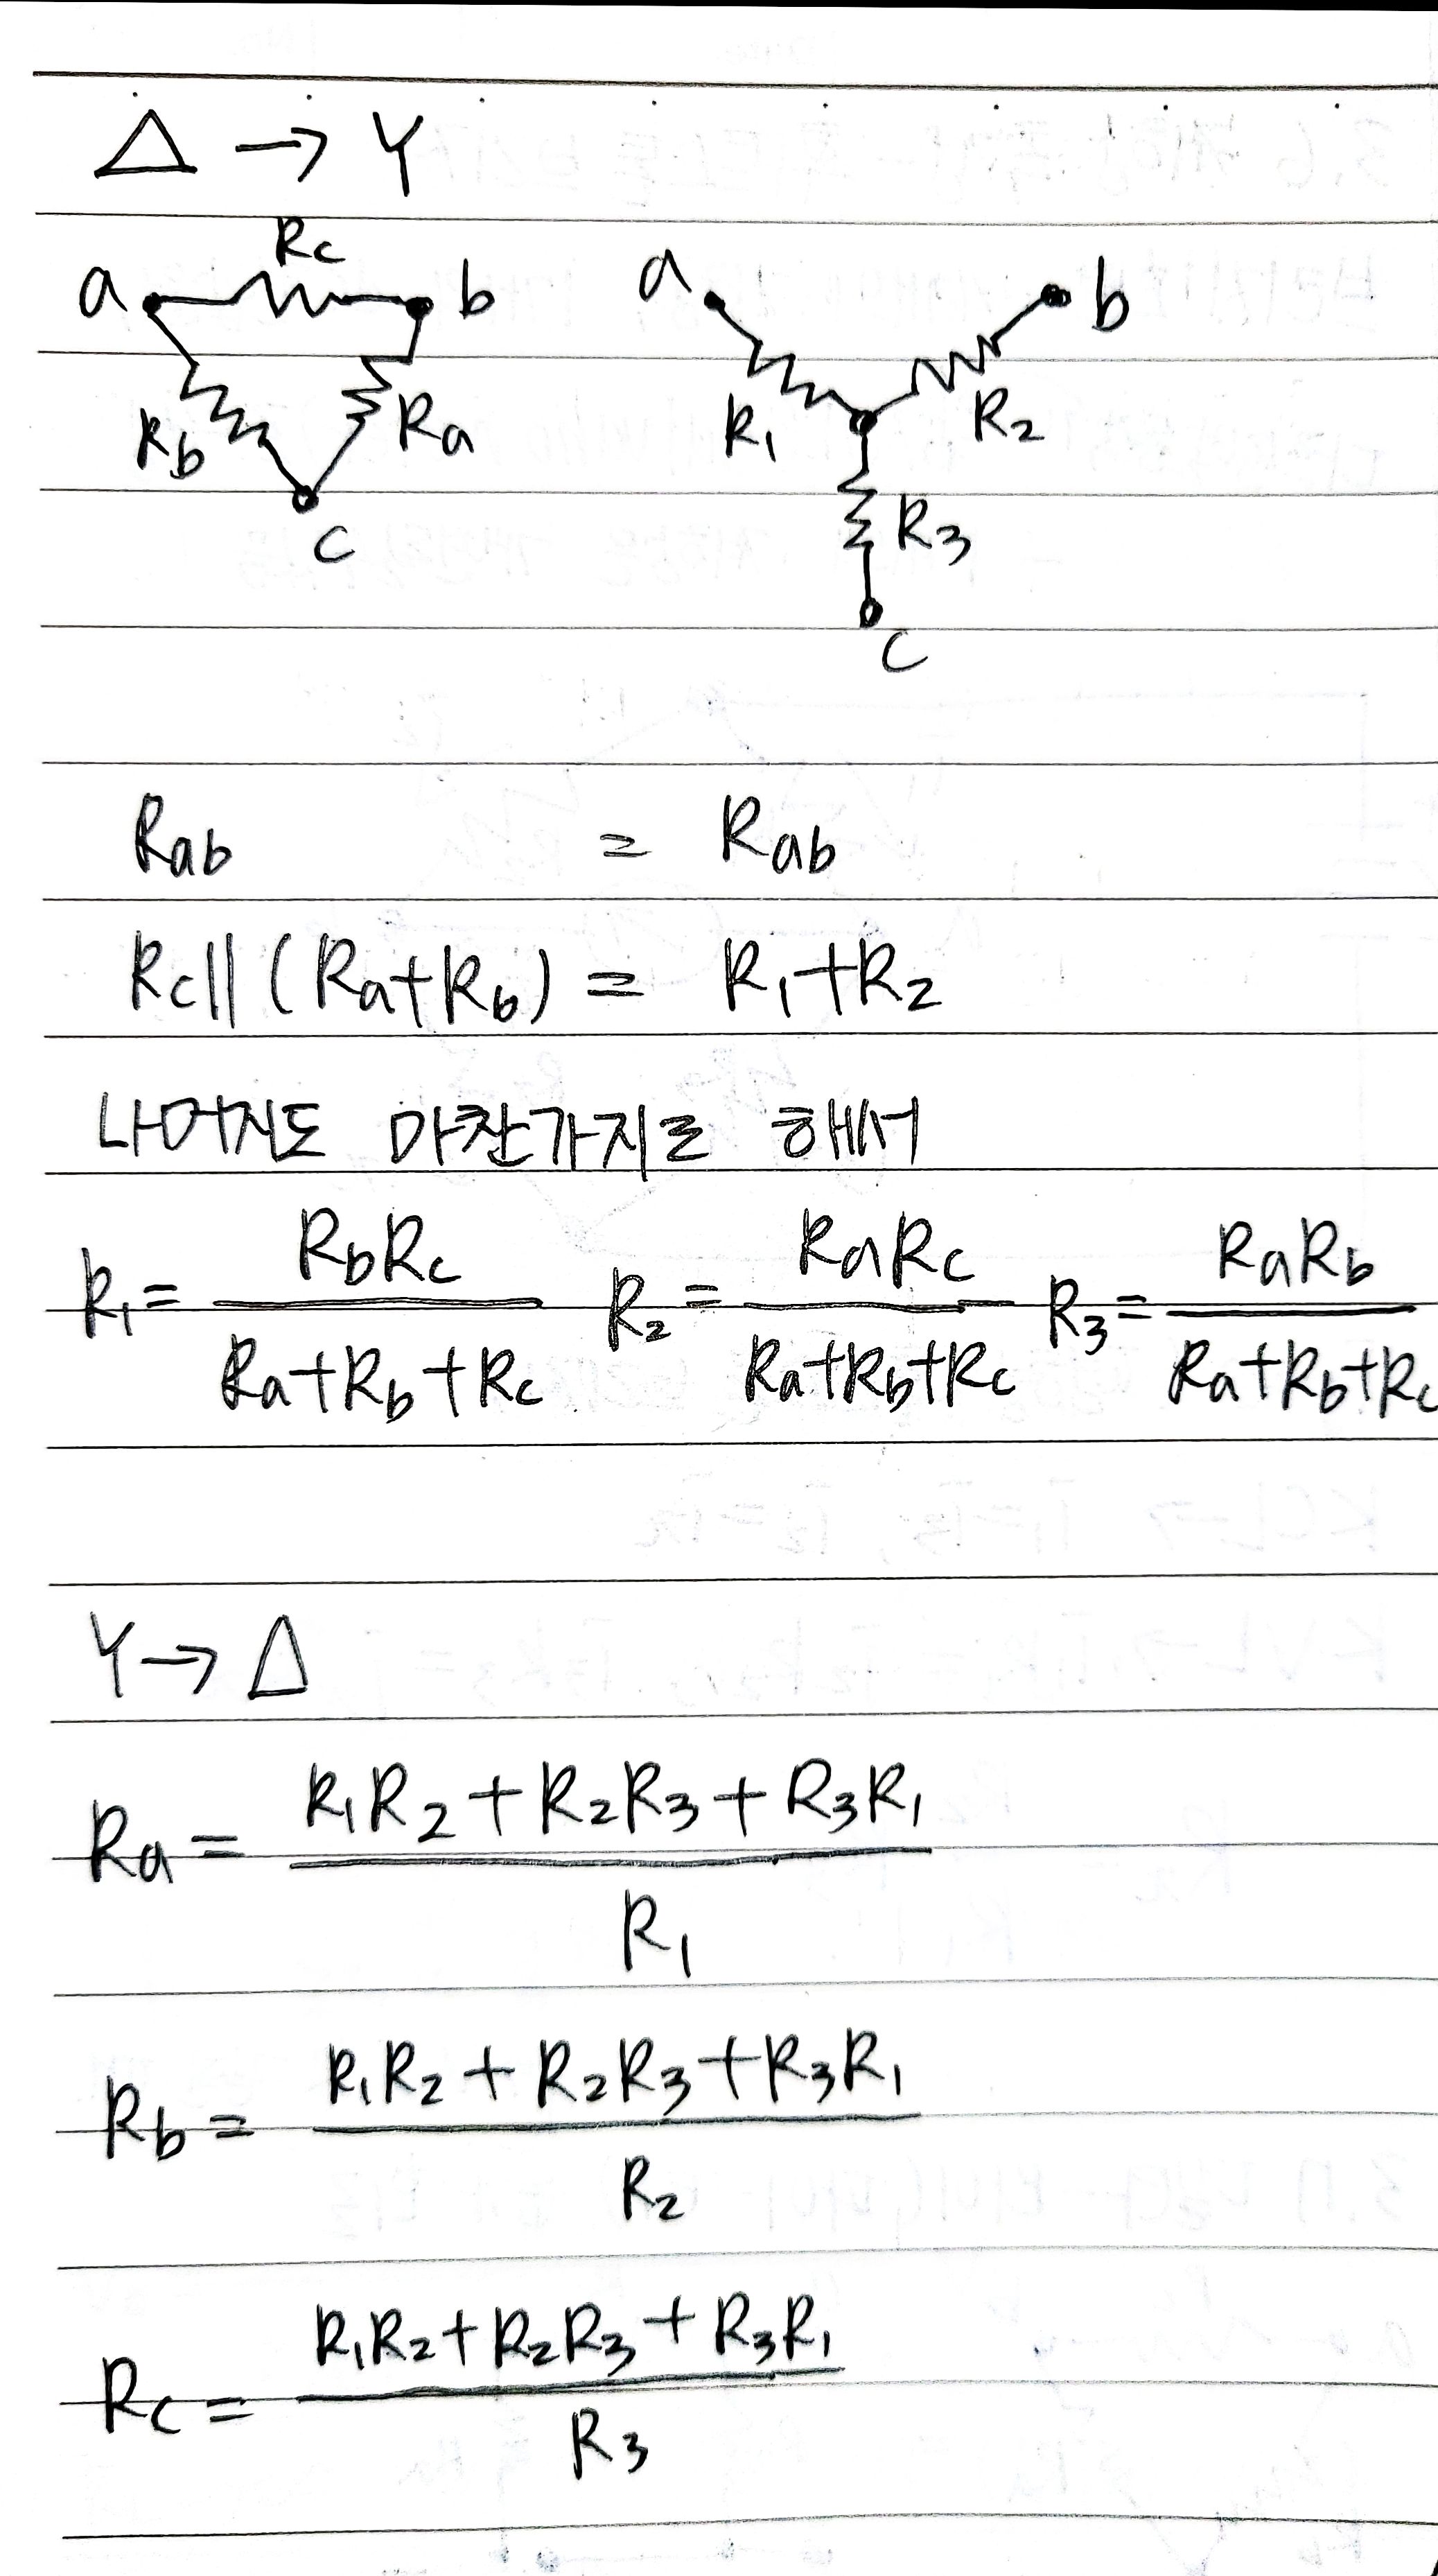 △ → Y
Rc
a b a b
Rb Ra R1 R2
c R3
c
Rab = Rab
Rc||(Ra+Rb) = R1+R2
나머지도 마찬가지로 해서
R1= RbRc / Ra+Rb+Rc R2= RaRc / Ra+Rb+Rc R3= RaRb / Ra+Rb+Rc
Y→△
Ra= R1R2+R2R3+R3R1 / R1
Rb= R1R2+R2R3+R3R1 / R2
Rc= R1R2+R2R3+R3R1 / R3